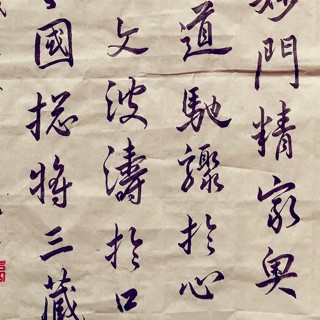 妙門精窮奧
道馳驟於心
文波濤於口
國揔將三藏